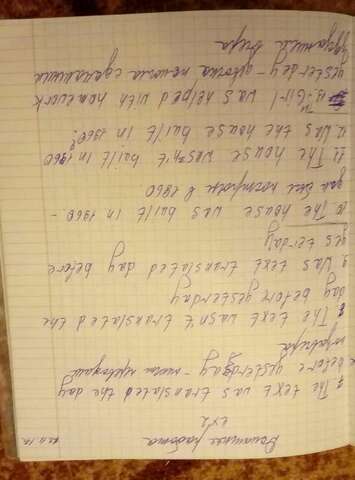 Домашняя работа
ex 2
7. The text was translated the day
before yesterday - текст переводили
позавчера
8. The text wasn't translated the
day before yesterday
9. Was text translated day before
yesterday
10 The house was built in 1960 -
дом был построен в 1960
11. The house wasn't built in 1960
12 Was the house built in 1960?
13. Girl was helped with homework
yesterday - девочка помогла сделанным